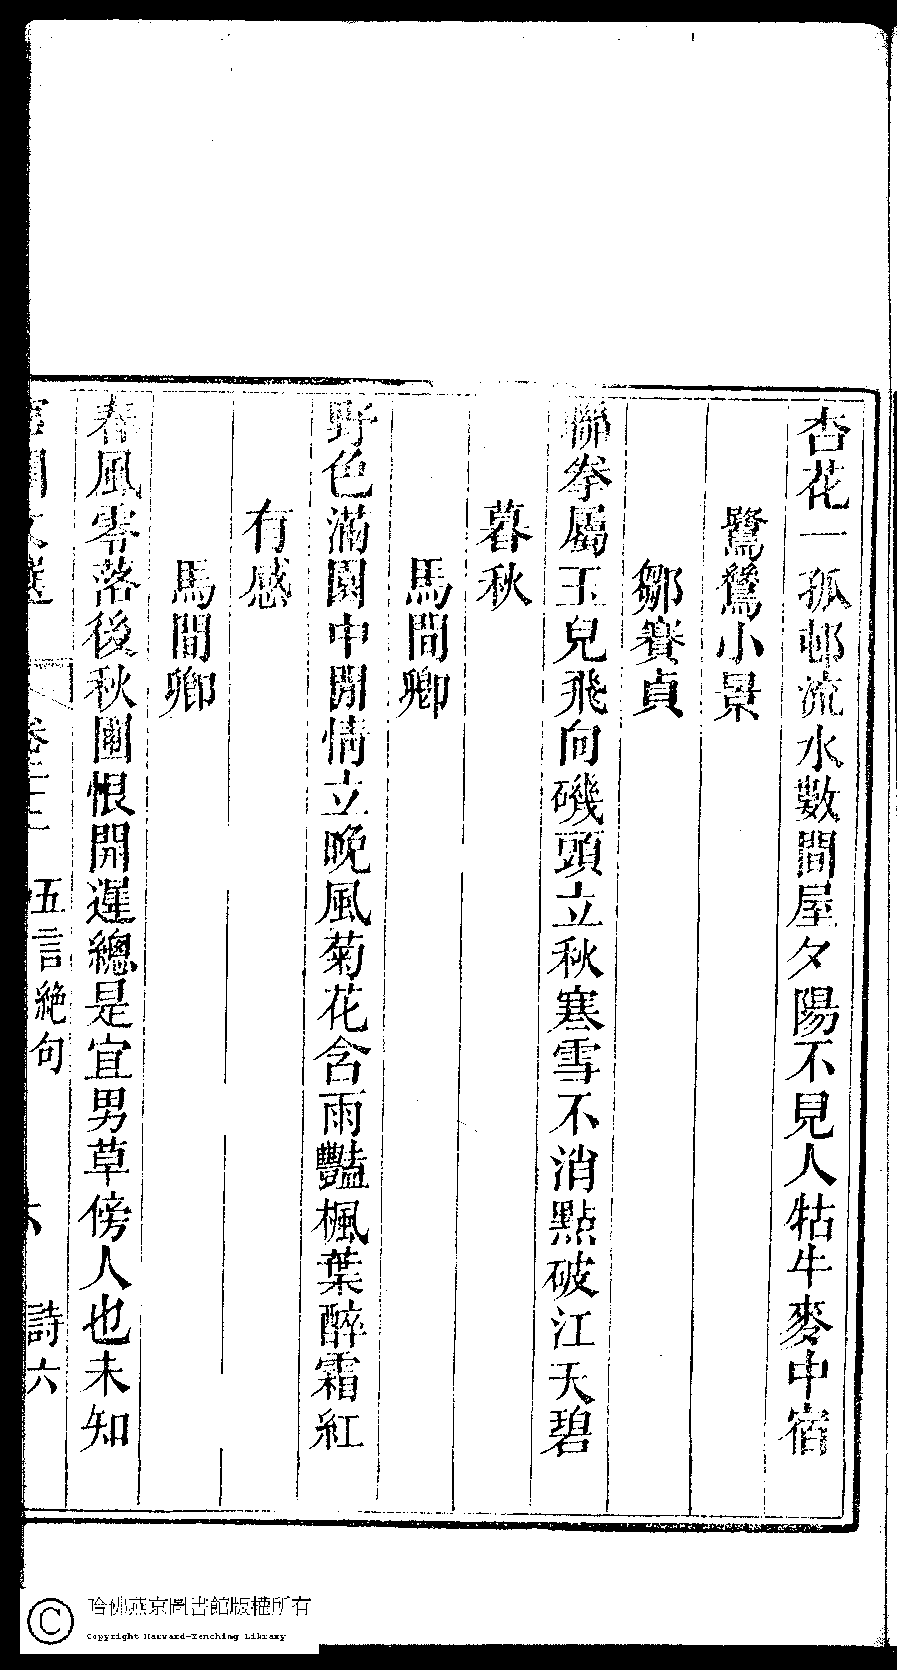 杏花一孤邨流水數間屋夕陽不見人牯牛麥中宿
鷺鷥小景
鄒賽貞
聯拳屬玉兒飛向磯頭立秋寒雪不消點破江天碧
暮秋
馬間卿
野色滿園中閒情立晚風菊花含雨豔楓葉醉霜紅
有感
馬間卿
春風零落後秋圃恨開遲總是宜男草傍人也未知
文選
卷十二
五言絶句
六
詩六
哈佛燕京圖書館版權所有
Copyright Harvard-Yenching Library